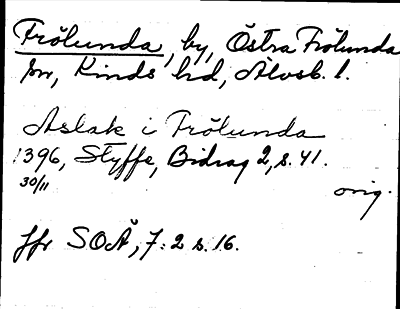 Frölunda, by, Östra Frölunda
sn, Kinds hd, Älvsb. l.
Aslak i Frölunda
1396, Styffe, Bidrag 2, s. 41.
30/11
orig.
jfr SOÄ, 7:2 s. 16.